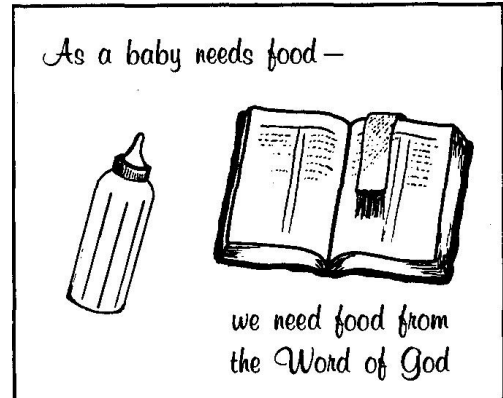 As a baby needs food—
we need food from
the Word of God